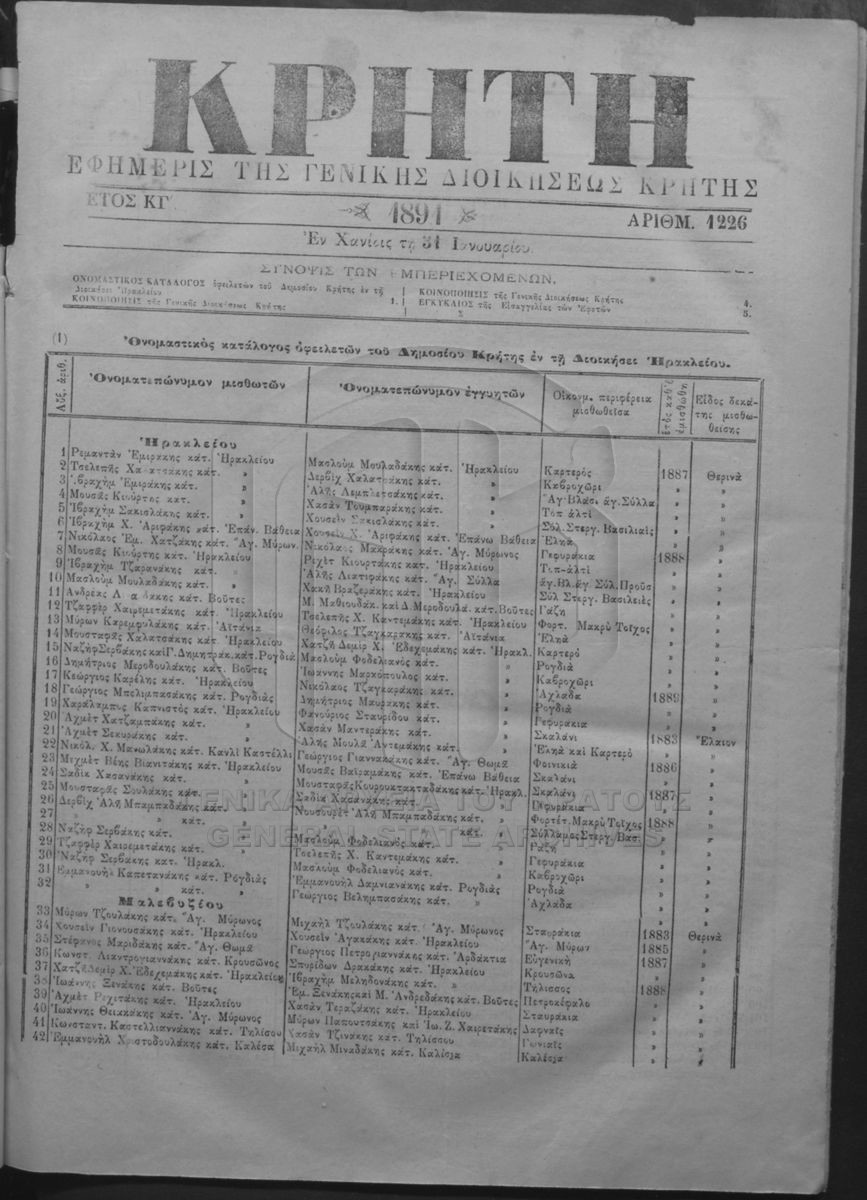 ΚΡΗΤΗ
ΕΦΗΜΕΡΙΣ ΤΗΣ ΓΕΝΙΚΗΣ ΔΙΟΙΚΗΣΕΩΣ ΚΡΗΤΗΣ
ΕΤΟΣ ΚΓ'. 1891 ΑΡΙΘΜ. 1226
Ἐν Χανίοις τῇ 31 Ἰανουαρίου.
ΣΥΝΟΨΙΣ ΤΩΝ ΕΜΠΕΡΙΕΧΟΜΕΝΩΝ.
ΟΝΟΜΑΣΤΙΚΟΣ ΚΑΤΑΛΟΓΟΣ ὀφειλετῶν τοῦ Δημοσίου Κρήτης ἐν τῇ
Διοικήσει Ἡρακλείου 1.
ΚΟΙΝΟΠΟΙΗΣΙΣ τῆς Γενικῆς Διοικήσεως Κρήτης
ΚΟΙΝΟΠΟΙΗΣΙΣ τῆς Γενικῆς Διοικήσεως Κρήτης 4.
ΕΓΚΥΚΛΙΟΣ τῆς Εἰσαγγελίας τῶν Ἐφετῶν 5.
(1) Ὀνομαστικὸς κατάλογος ὀφειλετῶν τοῦ Δημοσίου Κρήτης ἐν τῇ Διοικήσει Ἡρακλείου.
Αὔξ. ἀριθ. Ὀνοματεπώνυμον μισθωτῶν Ὀνοματεπώνυμον ἐγγυητῶν Οἰκονμ. περιφέρεια μισθωθεῖσα ἔτος καθ' ὃ ἐμισθώθη Εἶδος δεκάτης μισθωθείσης
Ἡρακλείου
1 Ρεμαντὰν Ἐμιράκης κάτ. Ἡρακλείου Μασλοὺμ Μουλαδάκης κάτ. Ἡρακλείου Καρτερὸς 1887 Θερινὰ
2 Τσελεπῆς κάτ. » Δερβὶχ Χαλατσάκης κάτ. » Καβροχῶρι » »
3 Ἰβραχὴμ Ἐμιράκης κάτ. » Ἀλῆς Λεμπλετσάκης κάτ. » Ἅγ. Βλάσι. ἅγ. Σύλλα » »
4 Μουσᾶς Κιούρτης κατ. » Χασὰν Τουμπαράκης κάτ. » Τὸπ ἀλτὶ » »
5 Ἰβραχὴμ Σακισλάκης κάτ. » Χουσεῒν Σακισλάκης κάτ. » Σύλ. Στεργ. Βασιλιαὶς » »
6 Ἰβραχὴμ Χ. Ἀριφάκης κάτ. Ἐπάν. Βάθεια Χουσεῒν Χ. Ἀριφάκης κάτ. Ἐπάνω Βάθεια Ἐληὰ » »
7 Νικόλαος Ἐμ. Χατζάκης κάτ. Ἅγ. Μύρων. Νικόλαος Μακράκης κάτ. Ἁγ. Μύρωνος Γεφυράκια 1888 »
8 Μουσᾶς Κιούρτης κάτ. Ἡρακλείου Ρεχὶτ Κιουρτάκης κάτ. Ἡρακλείου Τὸπ-ἀλτὶ » »
9 Ἰβραχὴμ Τζαρανάκης κάτ. » Ἀλῆς Λιατιφάκης κάτ. Ἅγ. Σύλλα ἅγ. Βλ. ἅγ Σύλ. Προῦσ » »
10 Μασλοὺμ Μουλαδάκης κάτ. » Χακῆ Βραζεράκης κάτ. Ἡρακλείου Σύλ Στεργ. Βασιλειὲς » »
11 Ἀνδρέας κάτ. Βοῦτες Μ. Μαθιουδάκ. καὶ Δ. Μεροδουλά. κάτ. Βοῦτες Γάζη » »
12 Τζαφφὲρ Χαιρεμετάκης κάτ. Ἡρακλείου Τσελεπῆς Χ. Καντεμάκης κάτ. Ἡρακλείου Φορτ. Μακρὺ Τοῖχος » »
13 Μύρων Καρεμφυλάκης κάτ. Ἀϊτάνια Θεόφιλος Τζαγκαράκης κάτ. Ἀϊτάνια Ἐληὰ » »
14 Μουσταφᾶς Χαλατσάκης κάτ. Ἡρακλείου Χατζῆ Δεμὶρ Χ. Ἐδεχεμάκης κάτ. Ἡρακλ. Καρτερὸ » »
15 Ναζὴφ Σερβάκης καὶ Γ. Δημητράκ. κάτ. Ρογδιά Μασλοὺμ Φοδελιανὸς κάτ. » Ρογδιὰ » »
16 Δημήτριος Μεροδουλάκης κάτ. Βοῦτες Ἰωάννης Μαρκόπουλος κάτ. » Καβροχῶρι » »
17 Κεώργιος Καρέλης κάτ. Ἡρακλείου Νικόλαος Τζαγκαράκης κάτ. » Ἀχλάδα 1889 »
18 Γεώργιος Μπελιμπασάκης κάτ. Ρογδιὰς Δημήτριος Μαυράκης κάτ. » Ρογδιὰ » »
19 Χαράλαμπος Καπνιστὸς κάτ. Ἡρακλείου Φανούριος Σταυρίδου κάτ. » Γεφυράκια » »
20 Ἀχμὲτ Χατζαμπάκης κάτ. » Χασὰν Μαντεράκης κάτ. » Σκαλάνι 1883 Ἔλαιον
21 Ἀχμὲτ Σεκυράκης κάτ. » Ἀλῆς Μουλᾶ Ἀντεμάκης κάτ. » Ἐληὰ καὶ Καρτερὸ » »
22 Νικόλ. Χ. Μανωλάκης κάτ. Κανλὶ Καστέλλι Γεώργιος Γιαννακάκης κάτ. Ἅγ. Θωμᾶ Φοινικιὰ 1886 »
23 Μιχμὲτ Βέης Βιανιτάκης κάτ. Ἡρακλείου Μουσᾶς Βαϊραμάκης κάτ. Ἐπάνω Βάθεια Σκαλάνι » »
24 Σαδὶκ Χασανάκης κάτ. » Μουσταφᾶς Κουρουκτακταδάκης κάτ. Ἡρακλ. Σκαλάνι 1887 »
25 Μουσταφᾶς Σουλάκης κάτ. » Σαδὶκ Χασανάκης κάτ. » Γεφυράκια » »
26 Δερβὶχ Ἀλῆ Μπαμπαδάκης κάτ. » Νουσουρὲτ Ἀλῆ Μπαμπαδάκης κάτ. » Φορτέτ. Μακρὺ Τοῖχος 1888 »
27 » » κάτ. » » » κάτ. » Σύλλαμος Στεργ. Βασ. » »
28 Ναζὴφ Σερβάκης κάτ. » Μασλοὺμ Φοδελιανὸς κάτ. » » »
29 Τζαφφὲρ Χαιρεμετάκης κάτ. » Τσελεπῆς Χ. Καντεμάκης κάτ. » Γεφυράκια » »
30 Ναζὴφ Σερβάκης κάτ. Ἡρακλ. Μασλοὺμ Φοδελιανὸς κάτ. » Καβροχῶρι » »
31 Ἐμμανουὴλ Καπετανάκης κάτ. Ρογδιὰς Ἐμμανουὴλ Δαμνιανάκης κάτ. Ρογδιὰς Ρογδιὰ » »
32 » » κάτ. » Γεώργιος Βελημπασάκης κάτ. » Ἀχλάδα » »
Μαλεβυζίου
33 Μύρων Τζουλάκης κάτ. Ἅγ. Μύρωνος Μιχαὴλ Τζουλάκης κάτ. Ἁγ. Μύρωνος Σταυράκια 1883 Θερινὰ
34 Χουσεῒν Γιονουσάκης κάτ. Ἡρακλείου Χουσεῒν Ἀγακάκης κάτ. Ἡρακλείου Ἅγ. Μύρων 1885 »
35 Στέφανος Μαριδάκης κάτ. Ἅγ. Θωμᾶ Γεώργιος Πετρογιαννάκης κάτ. Ἀρδάκτια Εὐγενικὴ 1887 »
36 Κωνστ. Λιαντρογιαννάκης κάτ. Κρουσῶνος Σπυρίδων Δρακάκης κάτ. Ἡρακλείου Κρουσῶνα » »
37 Χατζῆ Δεμὶρ Χ. Ἐδεχεμάκης κάτ. Ἡρακλείου Ἰβραχὴμ Μεληδονάκης κάτ. » Τήλισσος 1888 »
38 Ἰωάννης Ξενάκης κάτ. Βοῦτες Ἐμ. Ξενάκης καὶ Μ. Ἀνδρεδάκης κάτ. Βοῦτες Πετροκέφαλο » »
39 Ἀχμὲτ Ρεχιτάκης κάτ. Ἡρακλείου Χασὰν Τεραζάκης κάτ. Ἡρακλείου Σταυράκια » »
40 Ἰωάννης Θειακάκης κάτ. Ἁγ. Μύρωνος Μύρων Παπουτσάκης καὶ Ἰω. Ζ. Χαιρετάκης Δαφναῖς » »
41 Κωνσταντ. Καστελλιαννάκης κάτ. Τηλίσου Χασὰν Τζινάκης κάτ. Τηλίσσου Γωνιαῖς » »
42 Ἐμμανουὴλ Χριστοδουλάκης κάτ. Καλέσα Μιχαὴλ Μιναδάκης κάτ. Καλέσια Καλέσια » »
ΓΕΝΙΚΑ ΑΡΧΕΙΑ ΤΟΥ ΚΡΑΤΟΥΣ
GENERAL STATE ARCHIVES